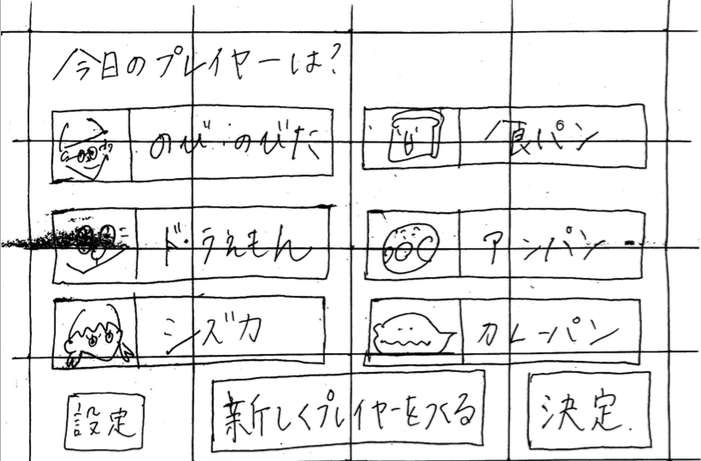 今日のプレイヤーは?
のび・のびた
食パン
ド・ラえもん
アンパン
シズカ
カレーパン
設定
新しくプレイヤーをつくる
決定